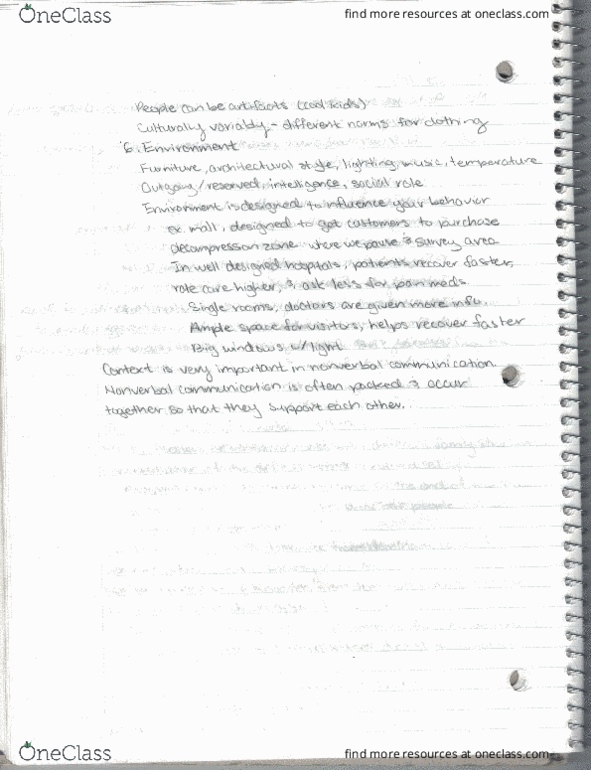 OneClass
find more resources at oneclass.com
People can be artifacts (cool kids)
Culturally variably - different norms for clothing
6. Environment
Furniture, architectural style, lighting, music, temperature
Outgoing/reserved, intelligence, social role
Environment is designed to influence your behavior
ex. mall, designed to get customers to purchase
decompression zone where we pause & survey area
In well designed hospitals, patients recover faster,
rate care higher, & ask less for pain meds.
Single rooms, doctors are given more info.
Ample space for visitors, helps recover faster
Big windows w/ light
Context is very important in nonverbal communication.
Nonverbal communication is often packed & occur
together so that they support each other.
OneClass
find more resources at oneclass.com